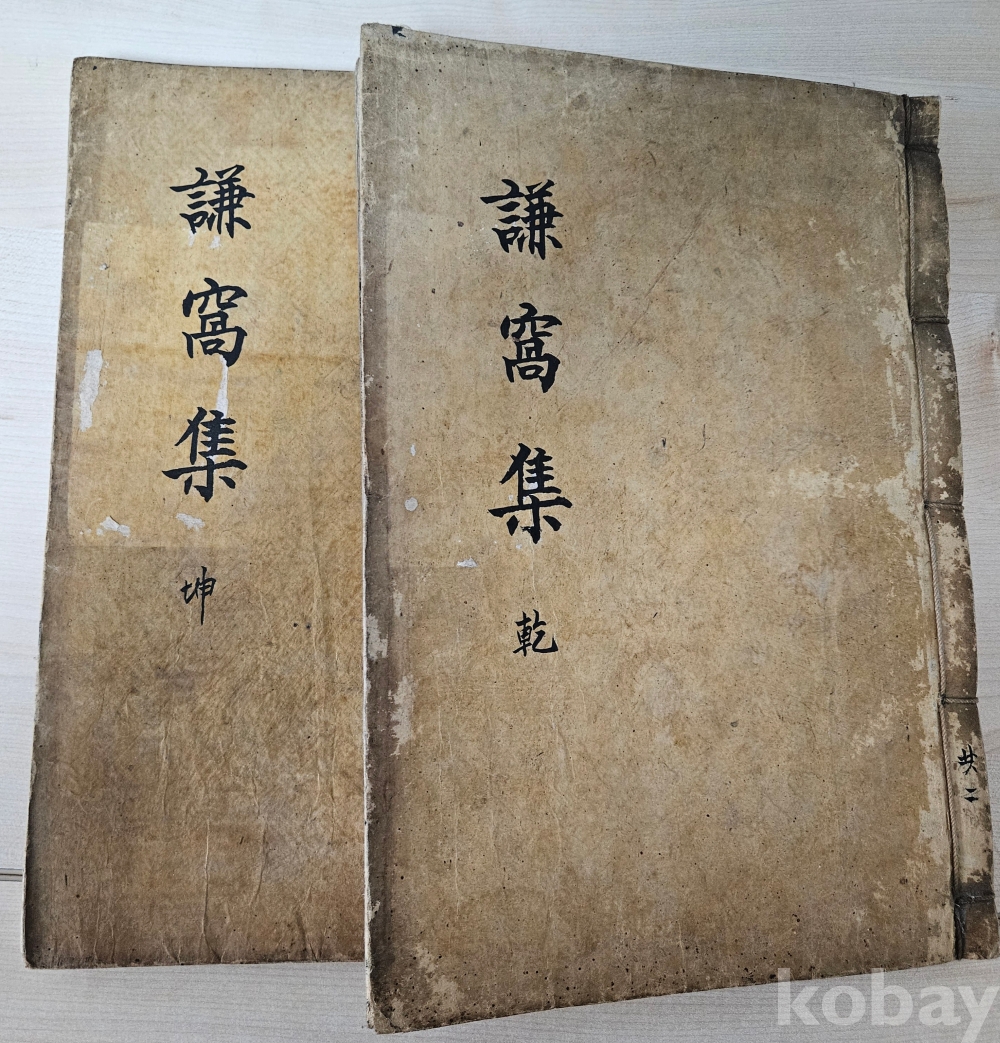 謙窩集
坤
謙窩集
乾
共二
kobay